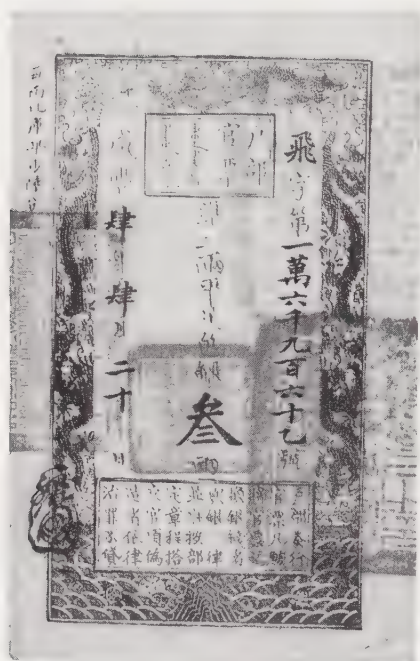 飛字第一萬六千九百六十乙號
戶部
官票
準二兩平足色銀叁兩
咸豐肆年肆月二十日
戶部奏行
官票凡願
將官票兌
換銀錢者
與銀一律
並准按部
定章程搭
交官項偽
造者依律
治罪不貸